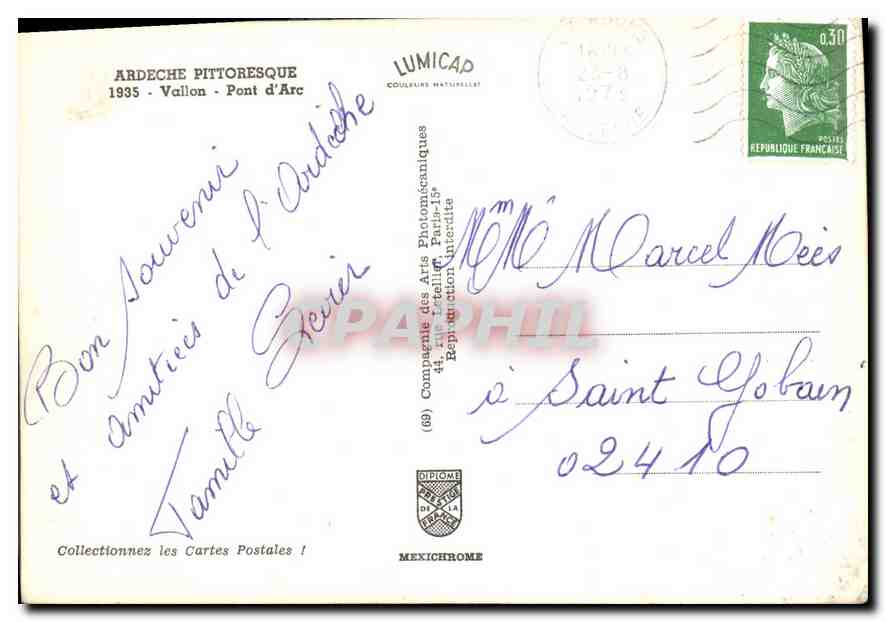 ARDECHE PITTORESQUE
1935 - Vallon - Pont d'Arc
LUMICAP
COULEURS NATURELLES
23-8
0,30
POSTES
REPUBLIQUE FRANÇAISE
Bon souvenir
et amitiés de l'Ardèche
Famille
(69) Compagnie des Arts Photomécaniques
44, rue Letellier, Paris-15e
Reproduction interdite
CPAPHIL
Mr Mme Marcel Mées
à Saint Gobain
02410
DIPLOME
PRESTIGE
DE LA
FRANCE
MEXICHROME
Collectionnez les Cartes Postales !